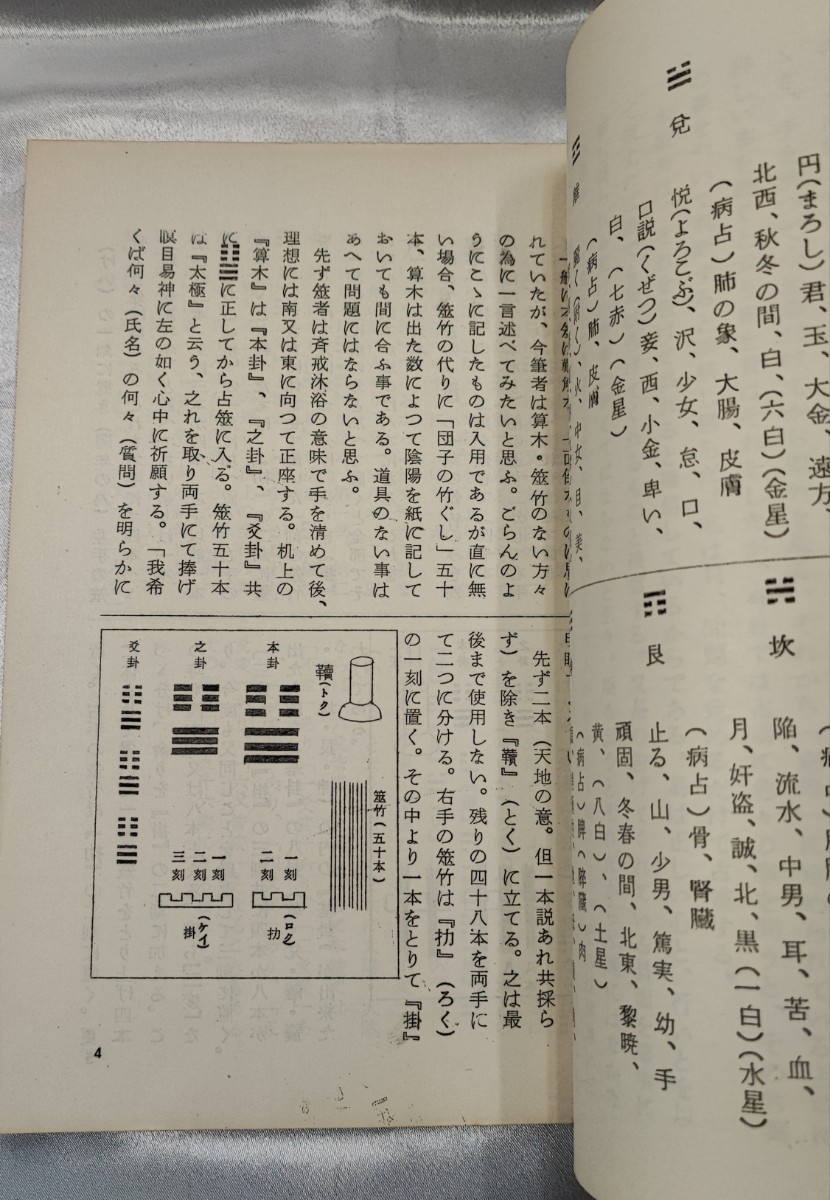 円(まろし)君、玉、大金、遠方、
北西、秋冬の間、白、(六白)(金星)
(病占)肺の象、大腸、皮膚
☱ 兌
悦(よろこぶ)、沢、少女、怠、口、
口説(くぜつ)妾、西、小金、卑い、
白、(七赤)(金星)
(病占)肺、皮膚
☵ 坎
陥、流水、中男、耳、苦、血、
月、奸盗、誠、北、黒(一白)(水星)
(病占)骨、腎臓
☶ 艮
止る、山、少男、篤実、幼、手
頑固、冬春の間、北東、黎暁、
黄、(八白)、(土星)
れていたが、今筆者は算木・筮竹のない方々
の為に一言述べてみたいと思ふ。ごらんのよ
うにこゝに記したものは入用であるが直に無
い場合、筮竹の代りに「団子の竹ぐし」五十
本、算木は出た数によつて陰陽を紙に記して
おいても間に合ふ事である。道具のない事は
あへて問題にはならないと思ふ。
先ず筮者は斉戒沐浴の意味で手を清めて後、
理想には南又は東に向つて正座する。机上の
『算木』は『本卦』、『之卦』、『爻卦』共
に䷊に正してから占筮に入る。筮竹五十本
は『太極』と云う、之れを取り両手にて捧げ
瞑目易神に左の如く心中に祈願する。「我希
くば何々(氏名)の何々(質問)を明らかに
先ず二本(天地の意。但一本説あれ共採ら
ず)を除き『韥』(とく)に立てる。之は最
後まで使用しない。残りの四十八本を両手に
て二つに分ける。右手の筮竹は『扐』(ろく)
の一刻に置く。その中より一本をとりて『掛』
韥(トク)
筮竹(五十本)
本卦
之卦
爻卦
一刻
二刻
扐(ロク)
一刻
二刻
三刻
掛(ケイ)
4